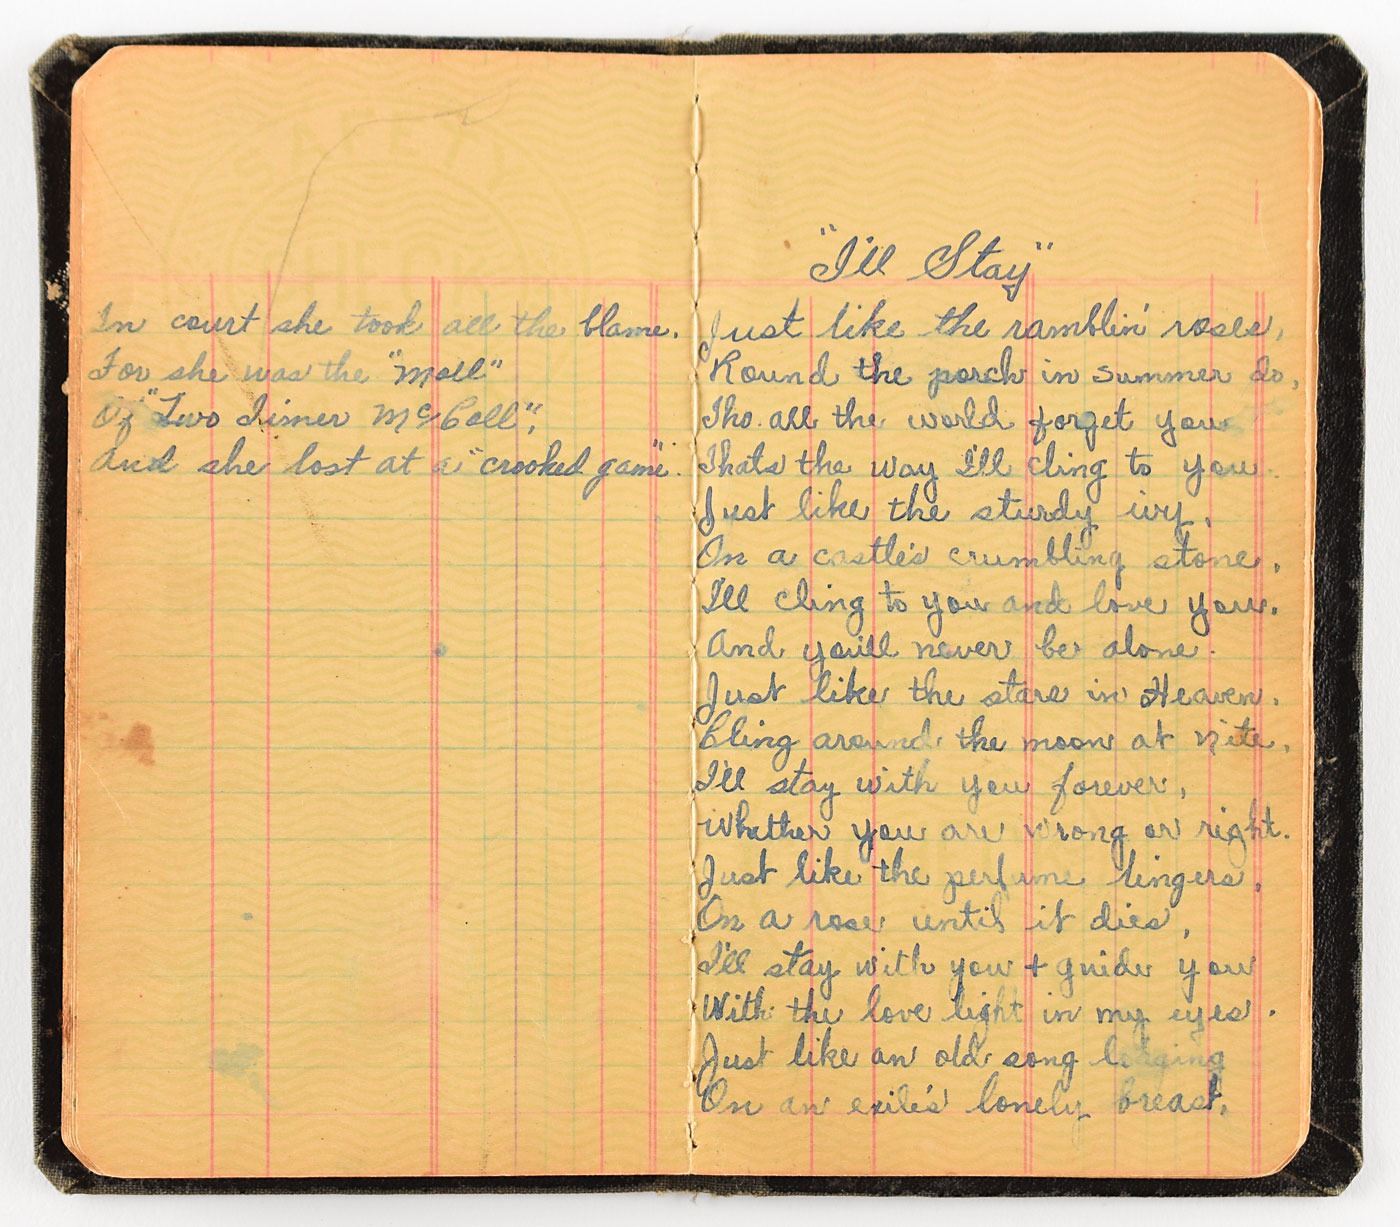 SAFETY
CHECK
In court she took all the blame.
For she was the "Moll"
Of "Two Timer McCall",
And she lost at a "crooked game".
"I'll Stay"
Just like the ramblin' roses,
'Round the porch in summer do,
Tho. all the world forget you
Thats the way I'll cling to you.
Just like the sturdy ivy,
On a castle's crumbling stone,
I'll cling to you and love you.
And you'll never be alone.
Just like the stars in Heaven,
Cling around the moon at nite,
I'll stay with you forever,
Whether you are wrong or right.
Just like the perfume lingers,
On a rose until it dies,
I'll stay with you + guide you
With the love light in my eyes.
Just like an old song lodging
On an exile's lonely breast,